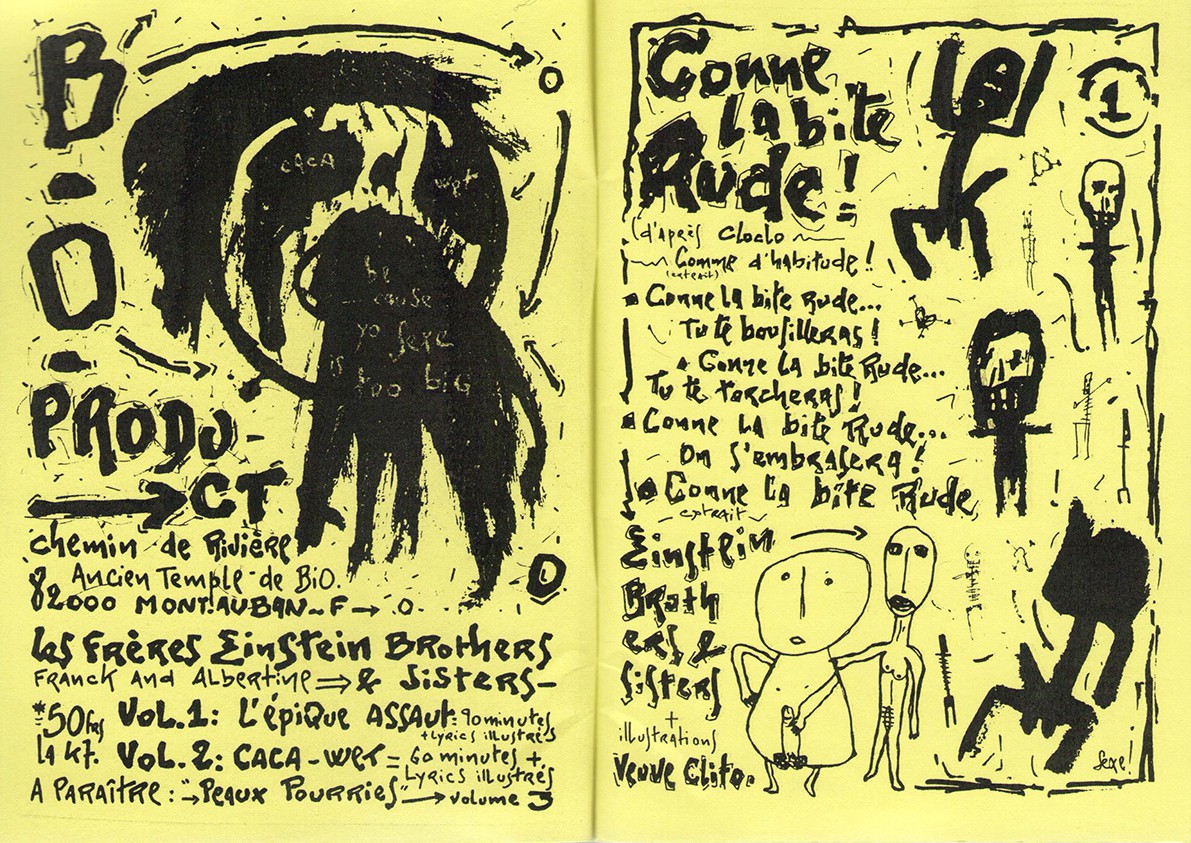 B.O.
PRODU-
CT
CACA
wet
be
cause
yo sexe
is too big
chemin de Rivière
Ancien Temple de BiO.
82000 MONTAUBAN-F→
Les Frères Einstein Brothers
Franck and Albertine ⇒ & Sisters-
*=50frs VOL.1: L'épique ASSAUT= 90 minutes
+ Lyrics illustrés
la K7. VOL.2: CACA-WET= 60 minutes +
Lyrics illustrés
A PARAÎTRE: → "Peaux Pourries" → volume 3
Conne
la bite
Rude!
1
(d'après Cloclo
Comme d'habitude!
(extrait)
Conne la bite Rude...
Tu te bousilleras!
Conne la bite Rude...
Tu te torcheras!
Conne la bite Rude...
On s'embrasera!
Conne la bite Rude
extrait
Einstein
Broth
ers &
Sisters
+
illustrations
Veuve Clito.
Sexe!